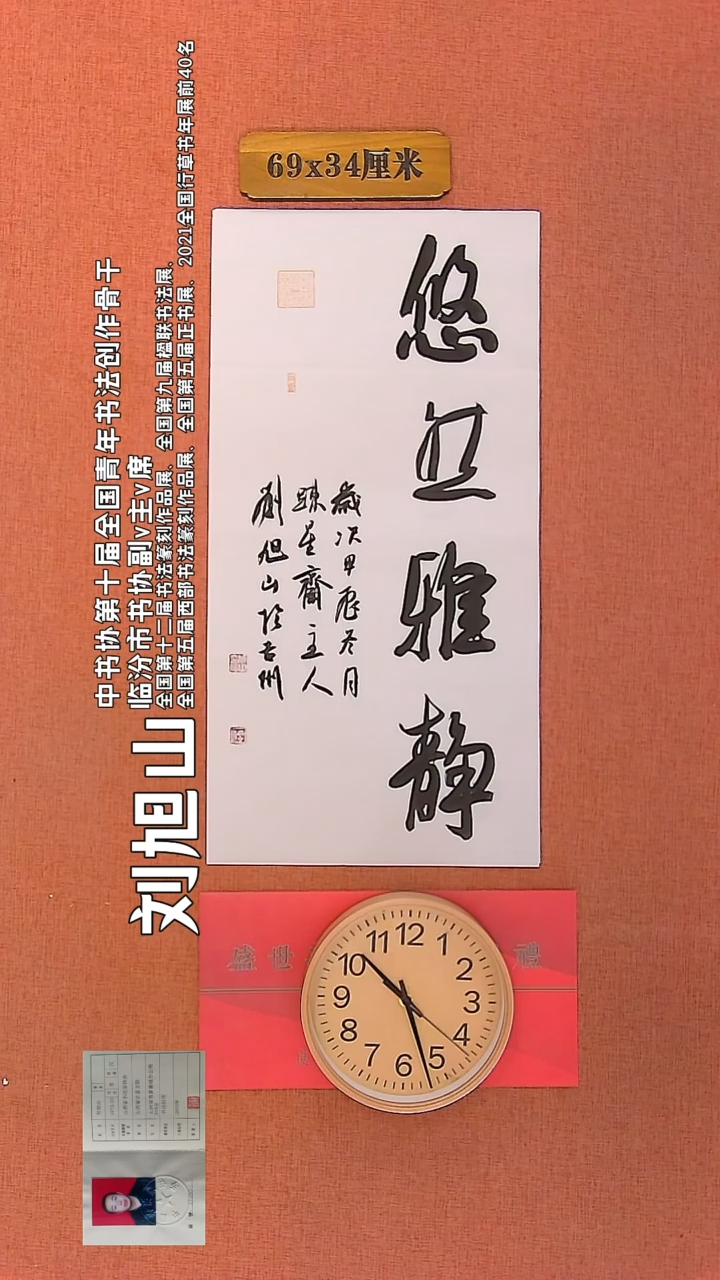 69x34厘米
悠然雅静
歲次甲辰冬月
踈星齋主人
劉旭山於吉州
中书协第十届全国青年书法创作骨干
临汾市书协副v主v席
全国第十二届书法篆刻作品展、全国第九届楹联书法展、
全国第五届西部书法篆刻作品展、全国第五届正书展、2021全国行草书年展前40名
刘旭山
12
1
2
3
4
5
6
7
8
9
10
11